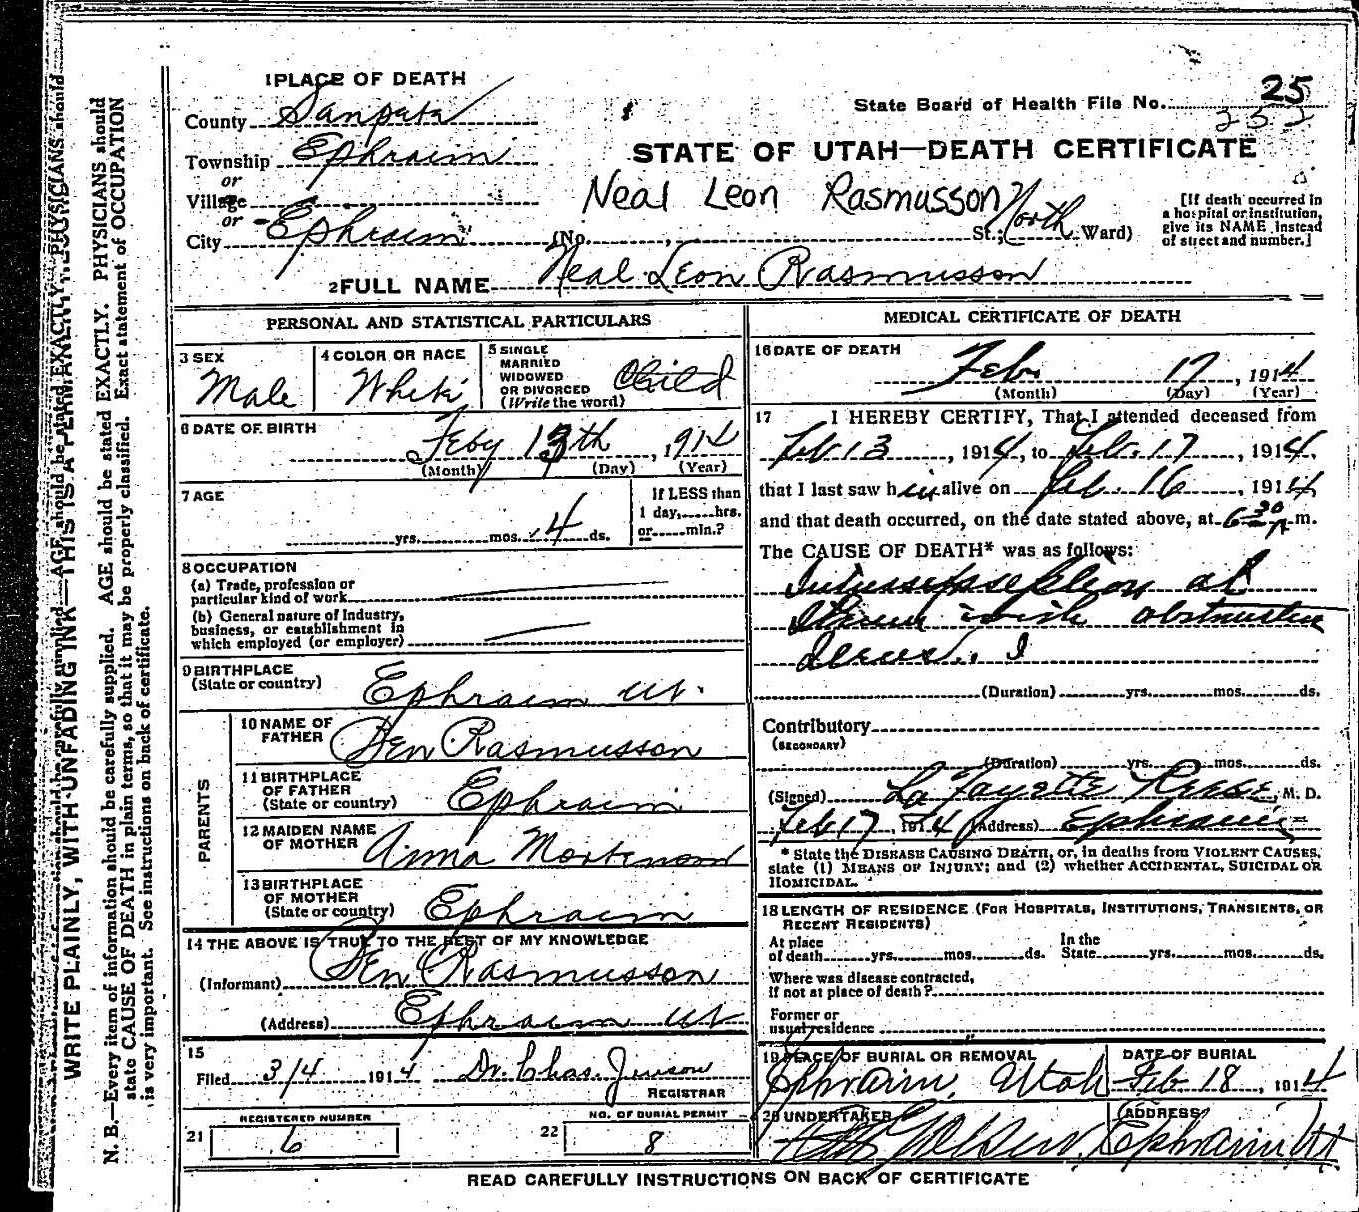 1 PLACE OF DEATH
County Sanpete
Township Ephraim
or
Village
or
City Ephraim (No. , St.; North Ward)
State Board of Health File No. 25
252
STATE OF UTAH—DEATH CERTIFICATE
Neal Leon Rasmusson
[If death occurred in
a hospital or institution,
give its NAME instead
of street and number.]
2 FULL NAME Neal Leon Rasmusson
PERSONAL AND STATISTICAL PARTICULARS
3 SEX
Male
4 COLOR OR RACE
White
5 SINGLE
MARRIED
WIDOWED
OR DIVORCED
(Write the word)
Child
6 DATE OF BIRTH
Feby 13th , 1914
(Month) (Day) (Year)
7 AGE
yrs. mos. 4 ds.
If LESS than
1 day, hrs.
or min.?
8 OCCUPATION
(a) Trade, profession or
particular kind of work
(b) General nature of Industry,
business, or establishment in
which employed (or employer)
9 BIRTHPLACE
(State or country)
Ephraim Ut.
PARENTS
10 NAME OF
FATHER
Den Rasmusson
11 BIRTHPLACE
OF FATHER
(State or country)
Ephraim
12 MAIDEN NAME
OF MOTHER
Anna Mortenson
13 BIRTHPLACE
OF MOTHER
(State or country)
Ephraim
14 THE ABOVE IS TRUE TO THE BEST OF MY KNOWLEDGE
(Informant) Den Rasmusson
(Address) Ephraim Ut
15
Filed 3/4 1914 Dr. Chas. Jenson
REGISTRAR
REGISTERED NUMBER
21 6
NO. OF BURIAL PERMIT
22 8
MEDICAL CERTIFICATE OF DEATH
16 DATE OF DEATH
Feb. 17 , 1914
(Month) (Day) (Year)
17 I HEREBY CERTIFY, That I attended deceased from
Feb 13 , 1914, to Feb. 17 , 1914,
that I last saw him alive on Feb. 16 , 1914
and that death occurred, on the date stated above, at 6 30 A m.
The CAUSE OF DEATH* was as follows:
Intussusception at
with obstruction
(Duration) yrs. mos. ds.
Contributory
(SECONDARY)
(Duration) yrs. mos. ds.
(Signed) La Fayette Rees , M. D.
Feb 17 , 1914 (Address) Ephraim
* State the DISEASE CAUSING DEATH, or, in deaths from VIOLENT CAUSES,
state (1) MEANS OF INJURY; and (2) whether ACCIDENTAL, SUICIDAL OR
HOMICIDAL.
18 LENGTH OF RESIDENCE (FOR HOSPITALS, INSTITUTIONS, TRANSIENTS, OR
RECENT RESIDENTS)
At place
of death yrs. mos. ds.
In the
State yrs. mos. ds.
Where was disease contracted,
If not at place of death?
Former or
usual residence
19 PLACE OF BURIAL OR REMOVAL
Ephraim, Utah
DATE OF BURIAL
Feb 18 , 1914
20 UNDERTAKER
ADDRESS
Ephraim Ut
READ CAREFULLY INSTRUCTIONS ON BACK OF CERTIFICATE
WRITE PLAINLY, WITH UNFADING INK—THIS IS A PERMANENT
N. B.—Every item of information should be carefully supplied. AGE should be stated EXACTLY. PHYSICIANS should
state CAUSE OF DEATH in plain terms, so that it may be properly classified. Exact statement of OCCUPATION
is very important. See instructions on back of certificate.